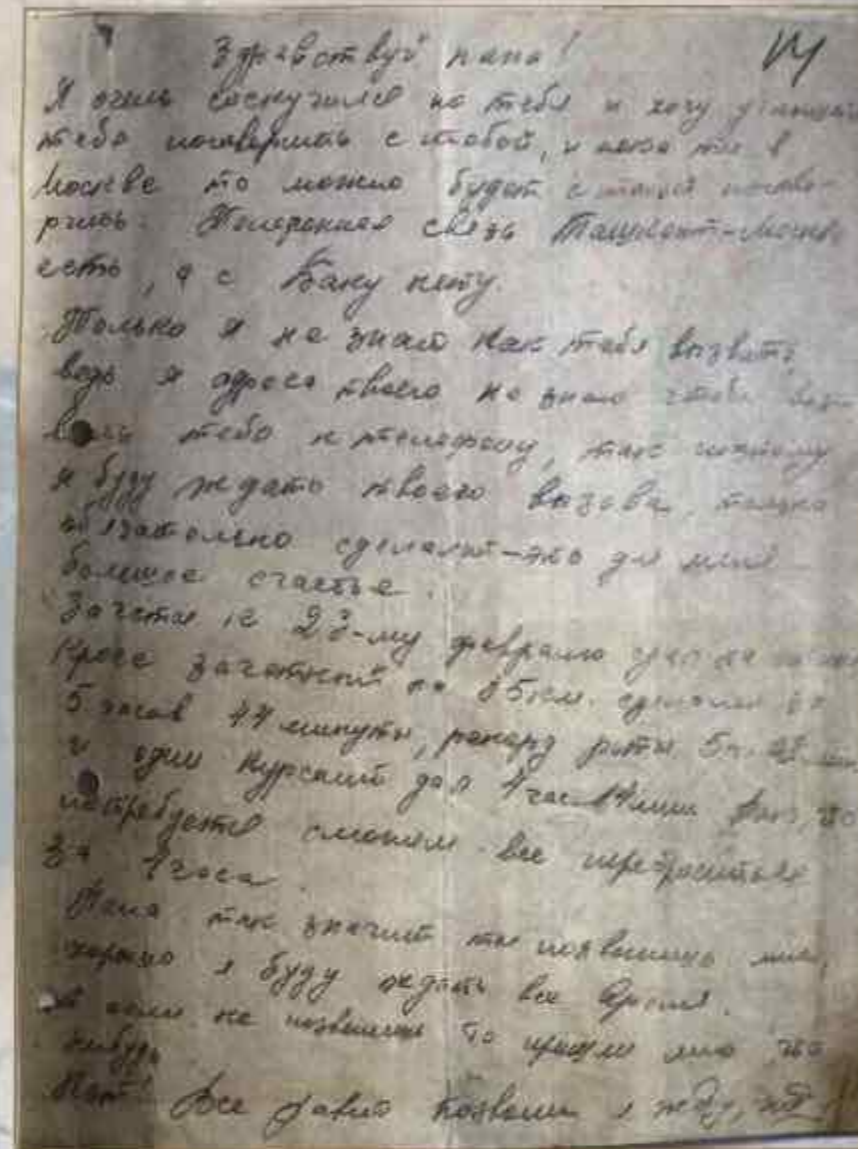 Здравствуй папа!
Я очень соскучился по тебе и хочу услышать
тебя поговорить с тобой, и пока ты в
Москве то можно будет с тобой погово-
рить. Телефонная связь Ташкент-Москва
есть, а с Баку нету.
Только я не знаю как тебя вызвать,
ведь я адреса твоего не знаю чтобы
тебя к телефону, так поэтому
я буду ждать твоего вызова, только
обязательно сделай-это для меня
большое счастье.
Зачёты к 23-му февралю сдал на
Кросс зачетный на 85км. сделали за
5 часов 44 минуты, рекорд роты 5ч.
и один курсант дал что
потребуется сможем все
за 4 часа.
Папа так значит ты позвонишь мне,
хорошо я буду ждать все время.
А если не позвонишь то пришли мне что
нибудь.
Все равно позвони я жду,